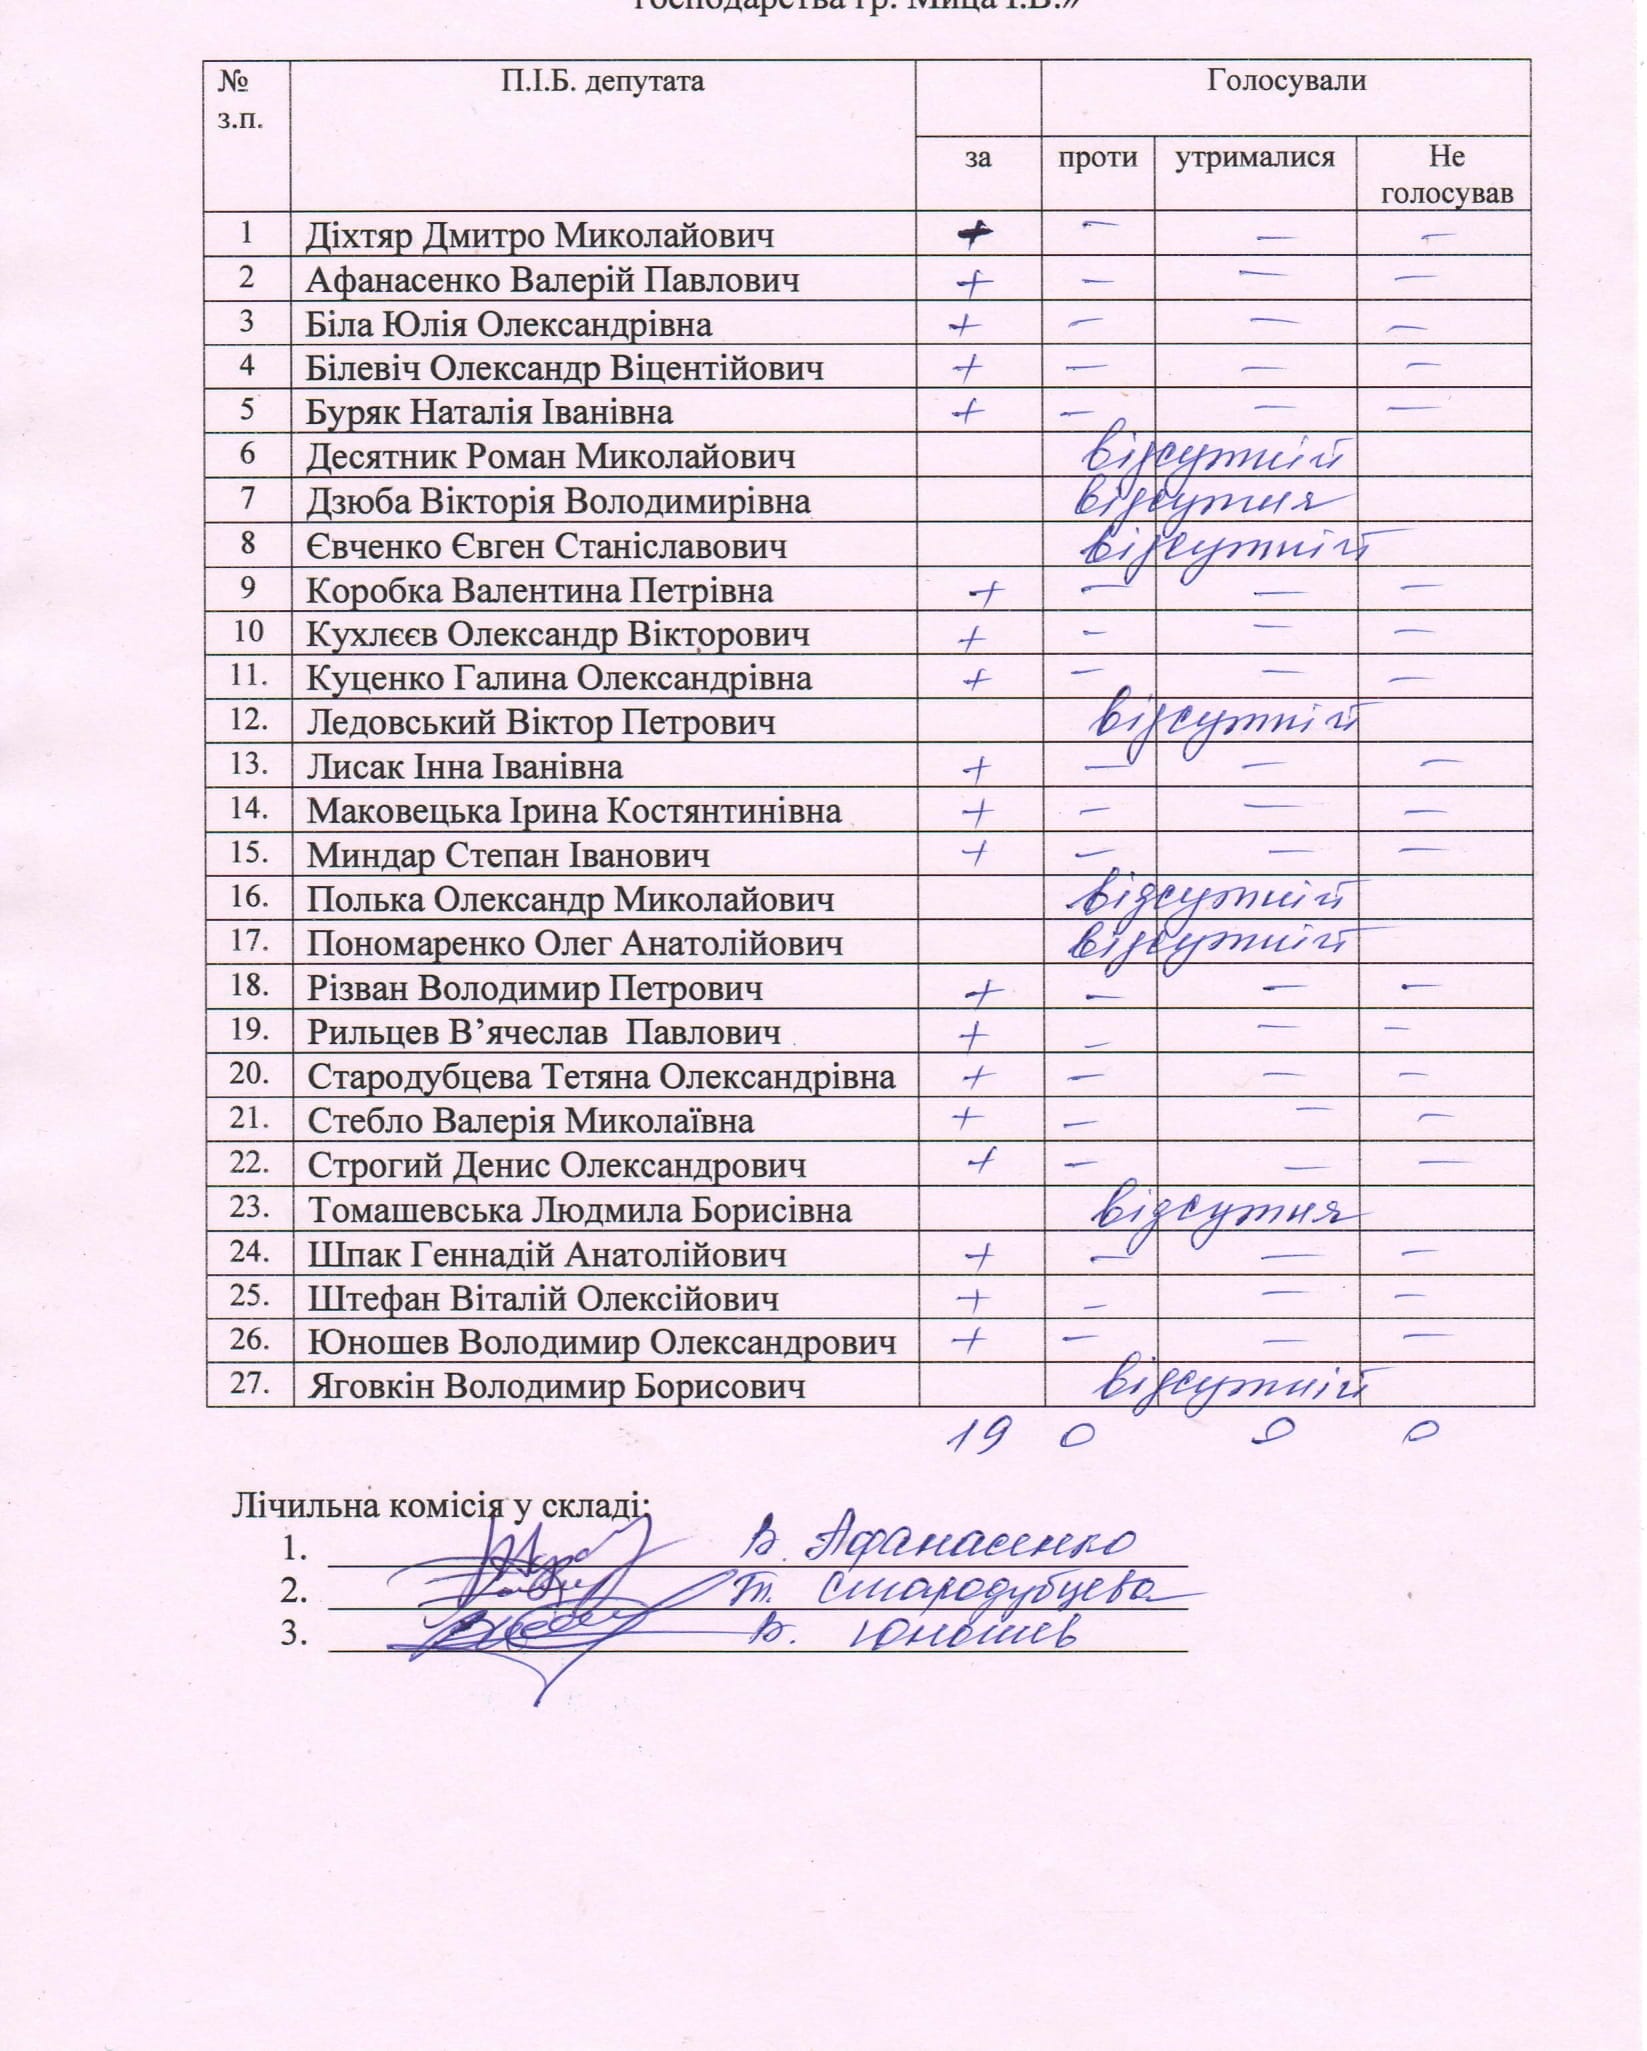 господарства гр. Мица І.В.»
№ з.п. П.І.Б. депутата Голосували
за проти утрималися Не голосував
1 Діхтяр Дмитро Миколайович + — — —
2 Афанасенко Валерій Павлович + — — —
3 Біла Юлія Олександрівна + — — —
4 Білевіч Олександр Віцентійович + — — —
5 Буряк Наталія Іванівна + — — —
6 Десятник Роман Миколайович відсутній
7 Дзюба Вікторія Володимирівна відсутня
8 Євченко Євген Станіславович відсутній
9 Коробка Валентина Петрівна + — — —
10 Кухлєєв Олександр Вікторович + — — —
11. Куценко Галина Олександрівна + — — —
12. Ледовський Віктор Петрович відсутній
13. Лисак Інна Іванівна + — — —
14. Маковецька Ірина Костянтинівна + — — —
15. Миндар Степан Іванович + — — —
16. Полька Олександр Миколайович відсутній
17. Пономаренко Олег Анатолійович відсутній
18. Різван Володимир Петрович + — — —
19. Рильцев В’ячеслав Павлович + — — —
20. Стародубцева Тетяна Олександрівна + — — —
21. Стебло Валерія Миколаївна + — — —
22. Строгий Денис Олександрович + — — —
23. Томашевська Людмила Борисівна відсутня
24. Шпак Геннадій Анатолійович + — — —
25. Штефан Віталій Олексійович + — — —
26. Юношев Володимир Олександрович + — — —
27. Яговкін Володимир Борисович відсутній
19 0 0 0
Лічильна комісія у складі:
1. В. Афанасенко
2. Т. Стародубцева
3. В. Юношев